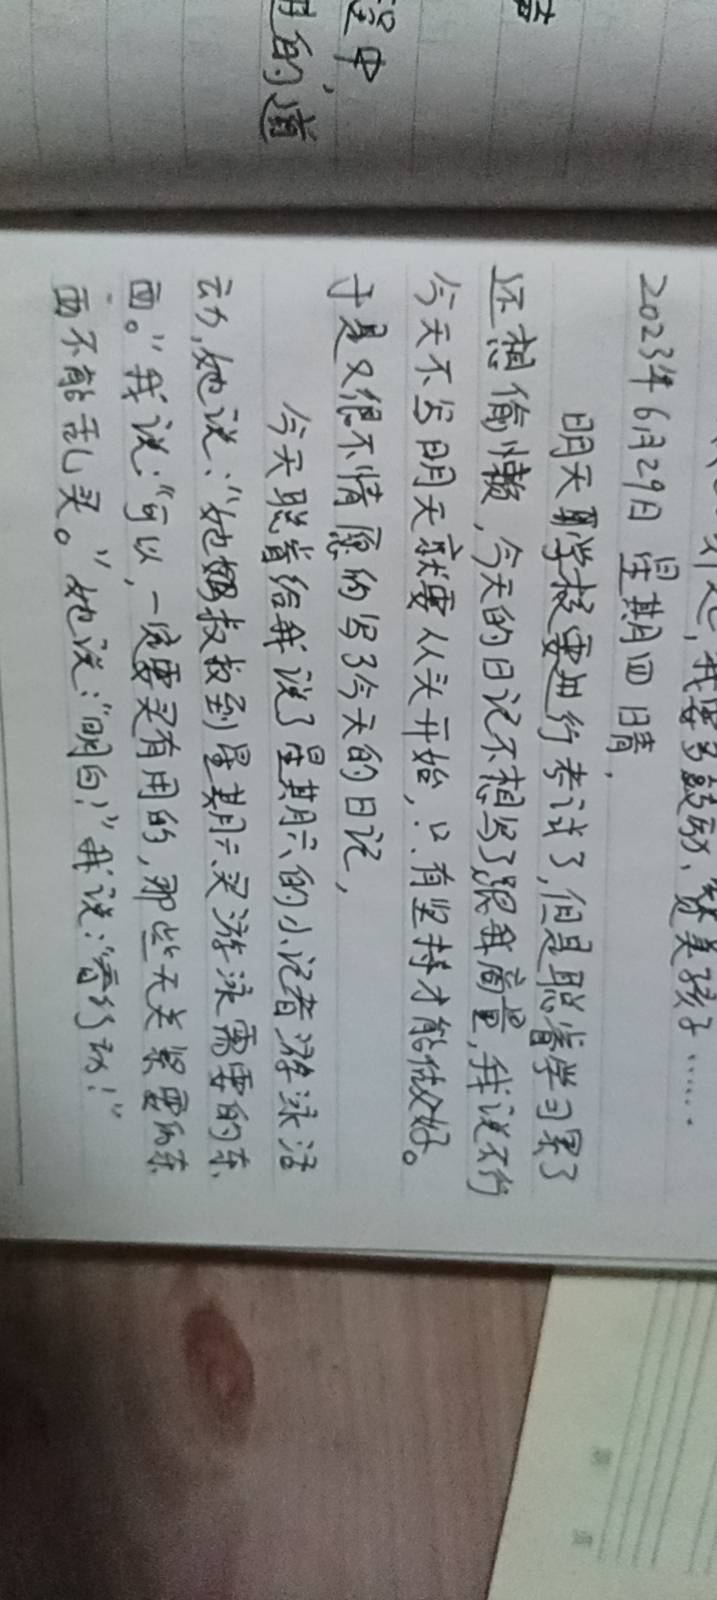 程中,
用的道
我要多鼓励、赞美孩子……
2023年6月29日 星期四 晴,
明天学校要进行考试了,但是聪睿学习累了
还想偷懒,今天的日记不想写了跟我商量,我说不行
今天不写明天就要从头开始,只有坚持才能做好。
于是又很不情愿的写了今天的日记,
今天聪睿给我说了星期六的小记者游泳活
动,她说:“她妈教教到星期六买游泳需要的东
面。”我说:“可以,一定要买有用的,那些无关紧要的东
西不能乱买。”她说:“明白!”我说:“看行动!”